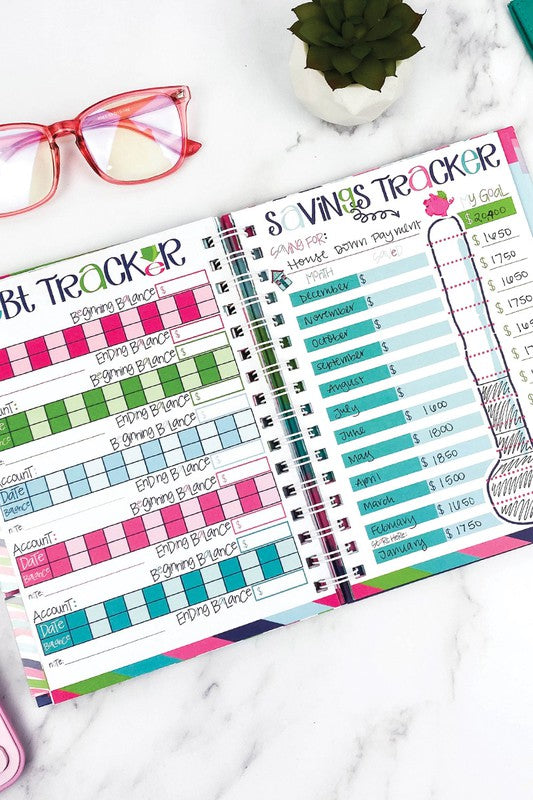 bt Tracker
Beginning Balance $
Ending Balance $
Beginning Balance $
Ending Balance $
Account:
Date
Balance
note:
Beginning Balance $
Ending Balance $
Account:
Date
Balance
note:
Beginning Balance $
Ending Balance $
Account:
Date
Balance
note:
Beginning Balance $
Ending Balance $
Savings Tracker
Saving For: House Down Payment
My Goal
$ 20400
Month Save
December $
November $
October $
September $
August $
July $
June $ 1600
May $ 1800
April $ 1850
March $ 1500
February $ 1650
Start Here
January $ 1750
$ 1650
$ 1750
$ 1650
$ 1750
$ 1650